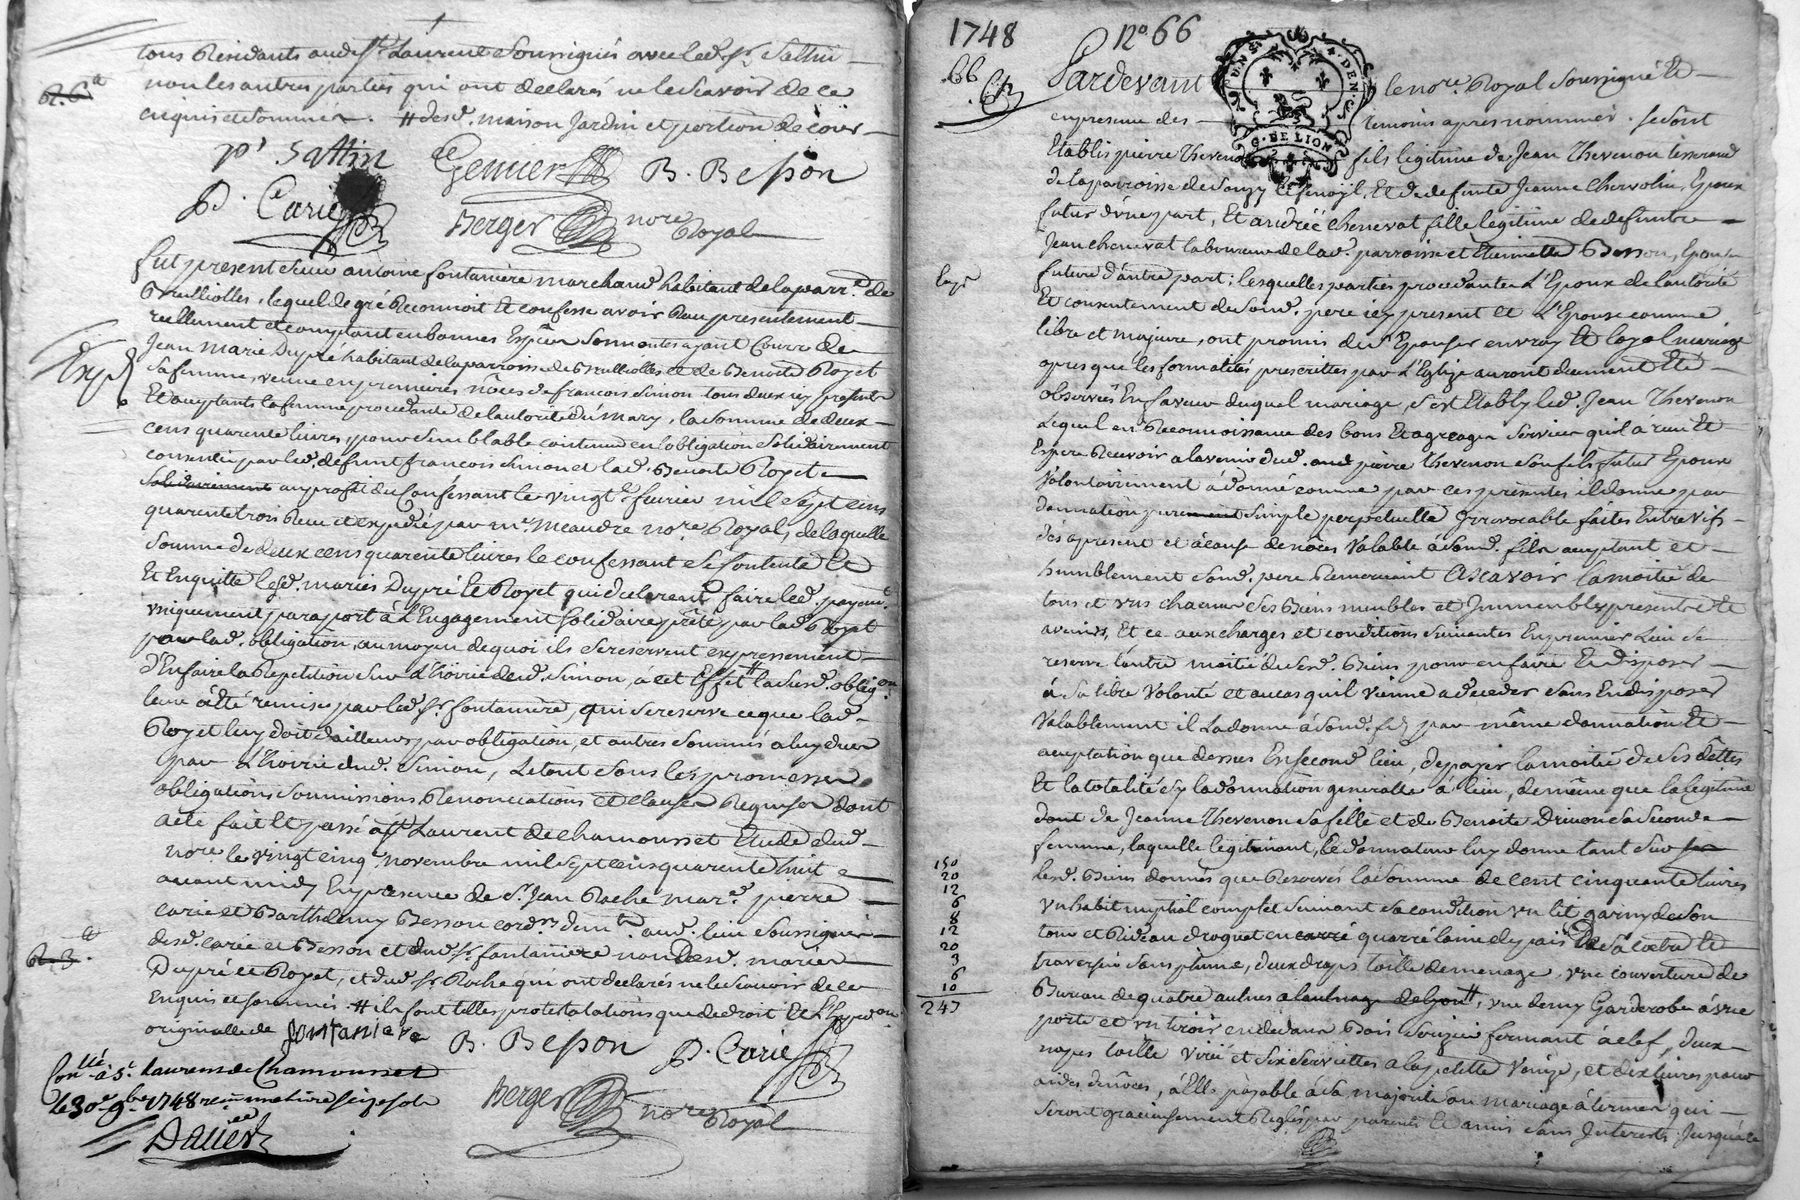 tous Residants aud. St. Laurent Soussignés avec led. sr. Sattin
non les autres parties qui ont declarés ne le Scavoir de ce
enquis et Sommés. # desd. maison Jardin et portion de cour
p' Sattin Genier B. Besson
P. Carié Berger nore Royal
fut present Sieur antoine fontaniere marchand habitant de la parr. de
Brulliolles, lequel de gré Reconnoit Et confesse avoir Reçu presentement
reellement et comptant en bonnes Espèces Sonnantes ayant Cours de
Jean Marie Dupré habitant de la parroisse de Brulliolles et de Benoite Royet
Expé
Sa femme, veuve en premieres nôces de francois Simon tous deux icy presents
Et aceptants la femme procedante de l'autorité du. Mary, la Somme de deux
cens quarente livres, pour Semblable contenue en l'obligation Solidairement
consentie par led. defunt francois Simon et lad. Benoite Royet
Solidairement au profit du Confessant le vingt fevrier mil Sept cens
quarente trois Reçu et expedié par me. Meandre nore. Royal, de laquelle
Somme de deux cens quarente livres le confessant se Contente Et
Et Enquitte lesd. mariés Dupré et Royet qui declarent faire led. payemt.
uniquement par raport à l'Engagement Solidaire prêté par lad. Royet
pour lad. obligation, au moyen de quoi ils Se reservent expressement
d'En faire la Repetition Sur l'hoirie dud. Simon, à cet Effet # la Susd. oblig.on
leur a été remise par led. sr. fontaniere, qui Se reserve ce que lad.
Royet luy doit d'ailleurs par obligation, et autres Sommes a luy dues
par l'hoirie dud. Simon, Le tout Sous les promesses
obligations Soumissions Renonciations et Clauses Requises dont
acte fait Et passé à St. Laurent de Chamousset Etude dud.
nore. le vingt cinq novembre mil Sept cens quarente huit
avant midy En presence de Sr. Jean Roche mar.d pierre
carié et Barthelemy Besson cord.rs dem.ts aud. lieu Soussignés
desd. carié et Besson et dud. sr. fontaniere non Desd. mariés
Dupré et Royet, et dud. sr. Roche qui ont declarés ne le Scavoir de ce
Enquis et Sommés. # ils font telles protestations que de droit Et l'Exped.on
originalle de fontaniere B. Besson P. Carié
Con.llé à St. Laurens de Chamousset
le 30e. 9bre 1748 Berger nore Royal
Dauer
1748 No. 66
66
Pardevant le nore. Royal Soussigné Et
GEN. DE LION
en presence des temoins apres nommés. Se Sont
Etablis pierre Thevenon fils legitime de Jean Thevenon tisserand
de la parroisse de Souzy, Et de defunte Jeanne Chervolin, Epoux
futur d'une part, Et andrée Chenevat fille legitime de defunt
Jean chenevat laboureur de lad. parroisse et Etiennette Besson, Epouse
future d'autre part; lesquelles parties procedantes L'Epoux de l'autorité
Et consentement de Sond. pere icy present et L'Epouse comme
libre et majeure, ont promis de S'Epouser en vray Et loyal mariage
apres que les formalités prescrittes par l'Eglize auront duement Eté
observées En faveur duquel mariage, S'est Etably led. Jean Thevenon
Lequel en Reconnoissance des bons Et agreages Services qu'il a reçu Et
Espere Recevoir a l'avenir dud. pierre Thevenon Son fils futur Epoux
Volontairement a donné comme par ces presentes il donne par
donnation purement simple perpetuelle Irrevocable faites Entre Vifs
dès apresent et à cause de nôces Valable à Sond. fils aceptant et
humblement Sond. pere Remerciant ASçavoir la moitié de
tous et uns chacuns Ses Biens meubles et Immeubles presents Et
avenirs, Et ce aux charges et conditions Suivantes En premier Lieu Se
reserve l'autre moitié de Sesd. Biens pour en faire Et disposer
à Sa libre Volonté et au cas qu'il vienne a deceder Sans En disposer
Valablement il La donne à Sond. fils par même donnation Et
aceptation que dessus En second lieu, de payer la moitié de Ses dettes
Et la totalité Sy la donnation generalle à lieu, de même que la legitime
dont de Jeanne Thevenon Sa fille et de Benoite Sa Seconde
femme, laquelle legitimant, le donnateur luy donne tant Sur
lesd. Biens donnés que Reservés la Somme de cent cinquante livres
un habit nuptial complet Suivant Sa condition un lit garny de Son
tour et Rideau droguet en carré quarré laine du pais
traversié Sans plume, deux draps toille de menage, une couverture de
Bureau de quatre aulnes a l'aulnage de Lyon #, une demy Garderobe à une
porte et un tiroir en dedans Bois Sapin fermant à clef, deux
napes toille virié et Six Serviettes a la petite Venize, et dix livres pour
aides de nôces, à Elle payable à Sa majorité ou mariage à termes qui
Seront gracieusement Reglés par parents Et amis Sans Interests jusqu'à
150
20
12
6
8
12
20
3
6
10
247